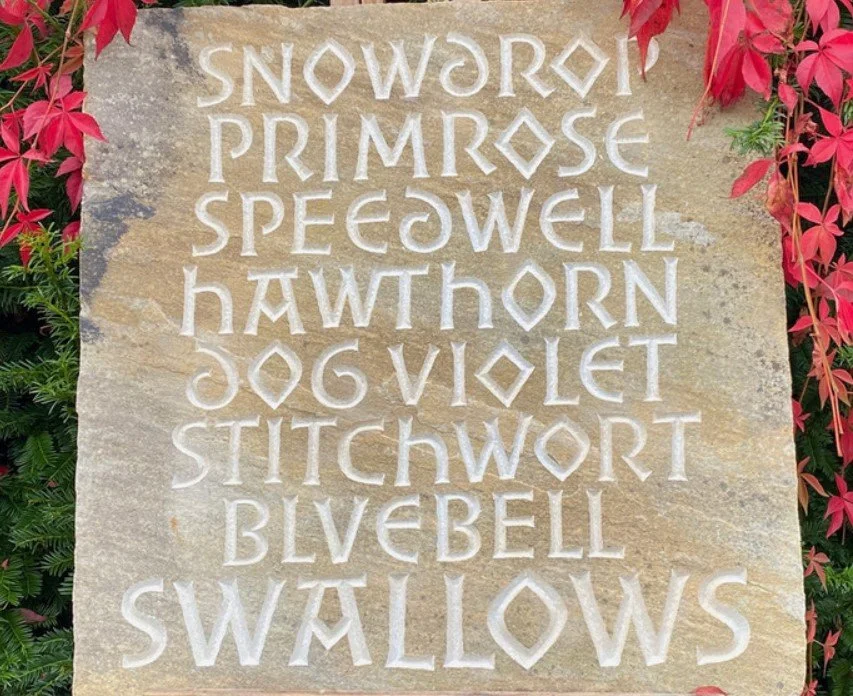 SNOWDROP
PRIMROSE
SPEEDWELL
hAWThORN
DOG VIOLET
STITChWORT
BLVEBELL
SWALLOWS